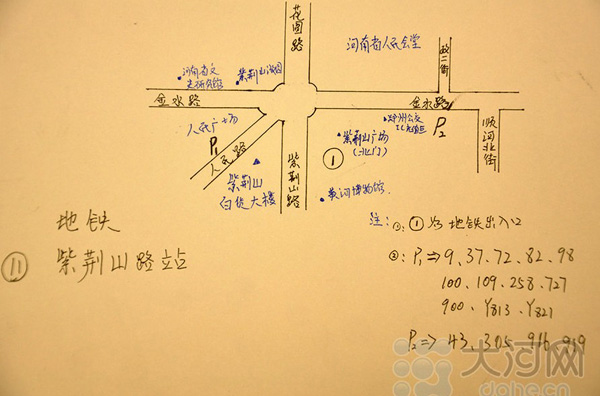 花园路
河南省人民会堂
政二街
紫荆山公园
金水路
金水路
顺河北街
人民广场
P1
人民路
紫荆山
百货大楼
紫荆山路
①
紫荆山广场
(北门)
郑州公交
P2
黄河博物馆
地铁
⑪ 紫荆山路站
注: ①: ① 为地铁出入口
②: P1⇒9.37.72.82.98
100.109.258.727
900.Y813.Y821
P2⇒43.305.916.919
大河网
dahe.cn